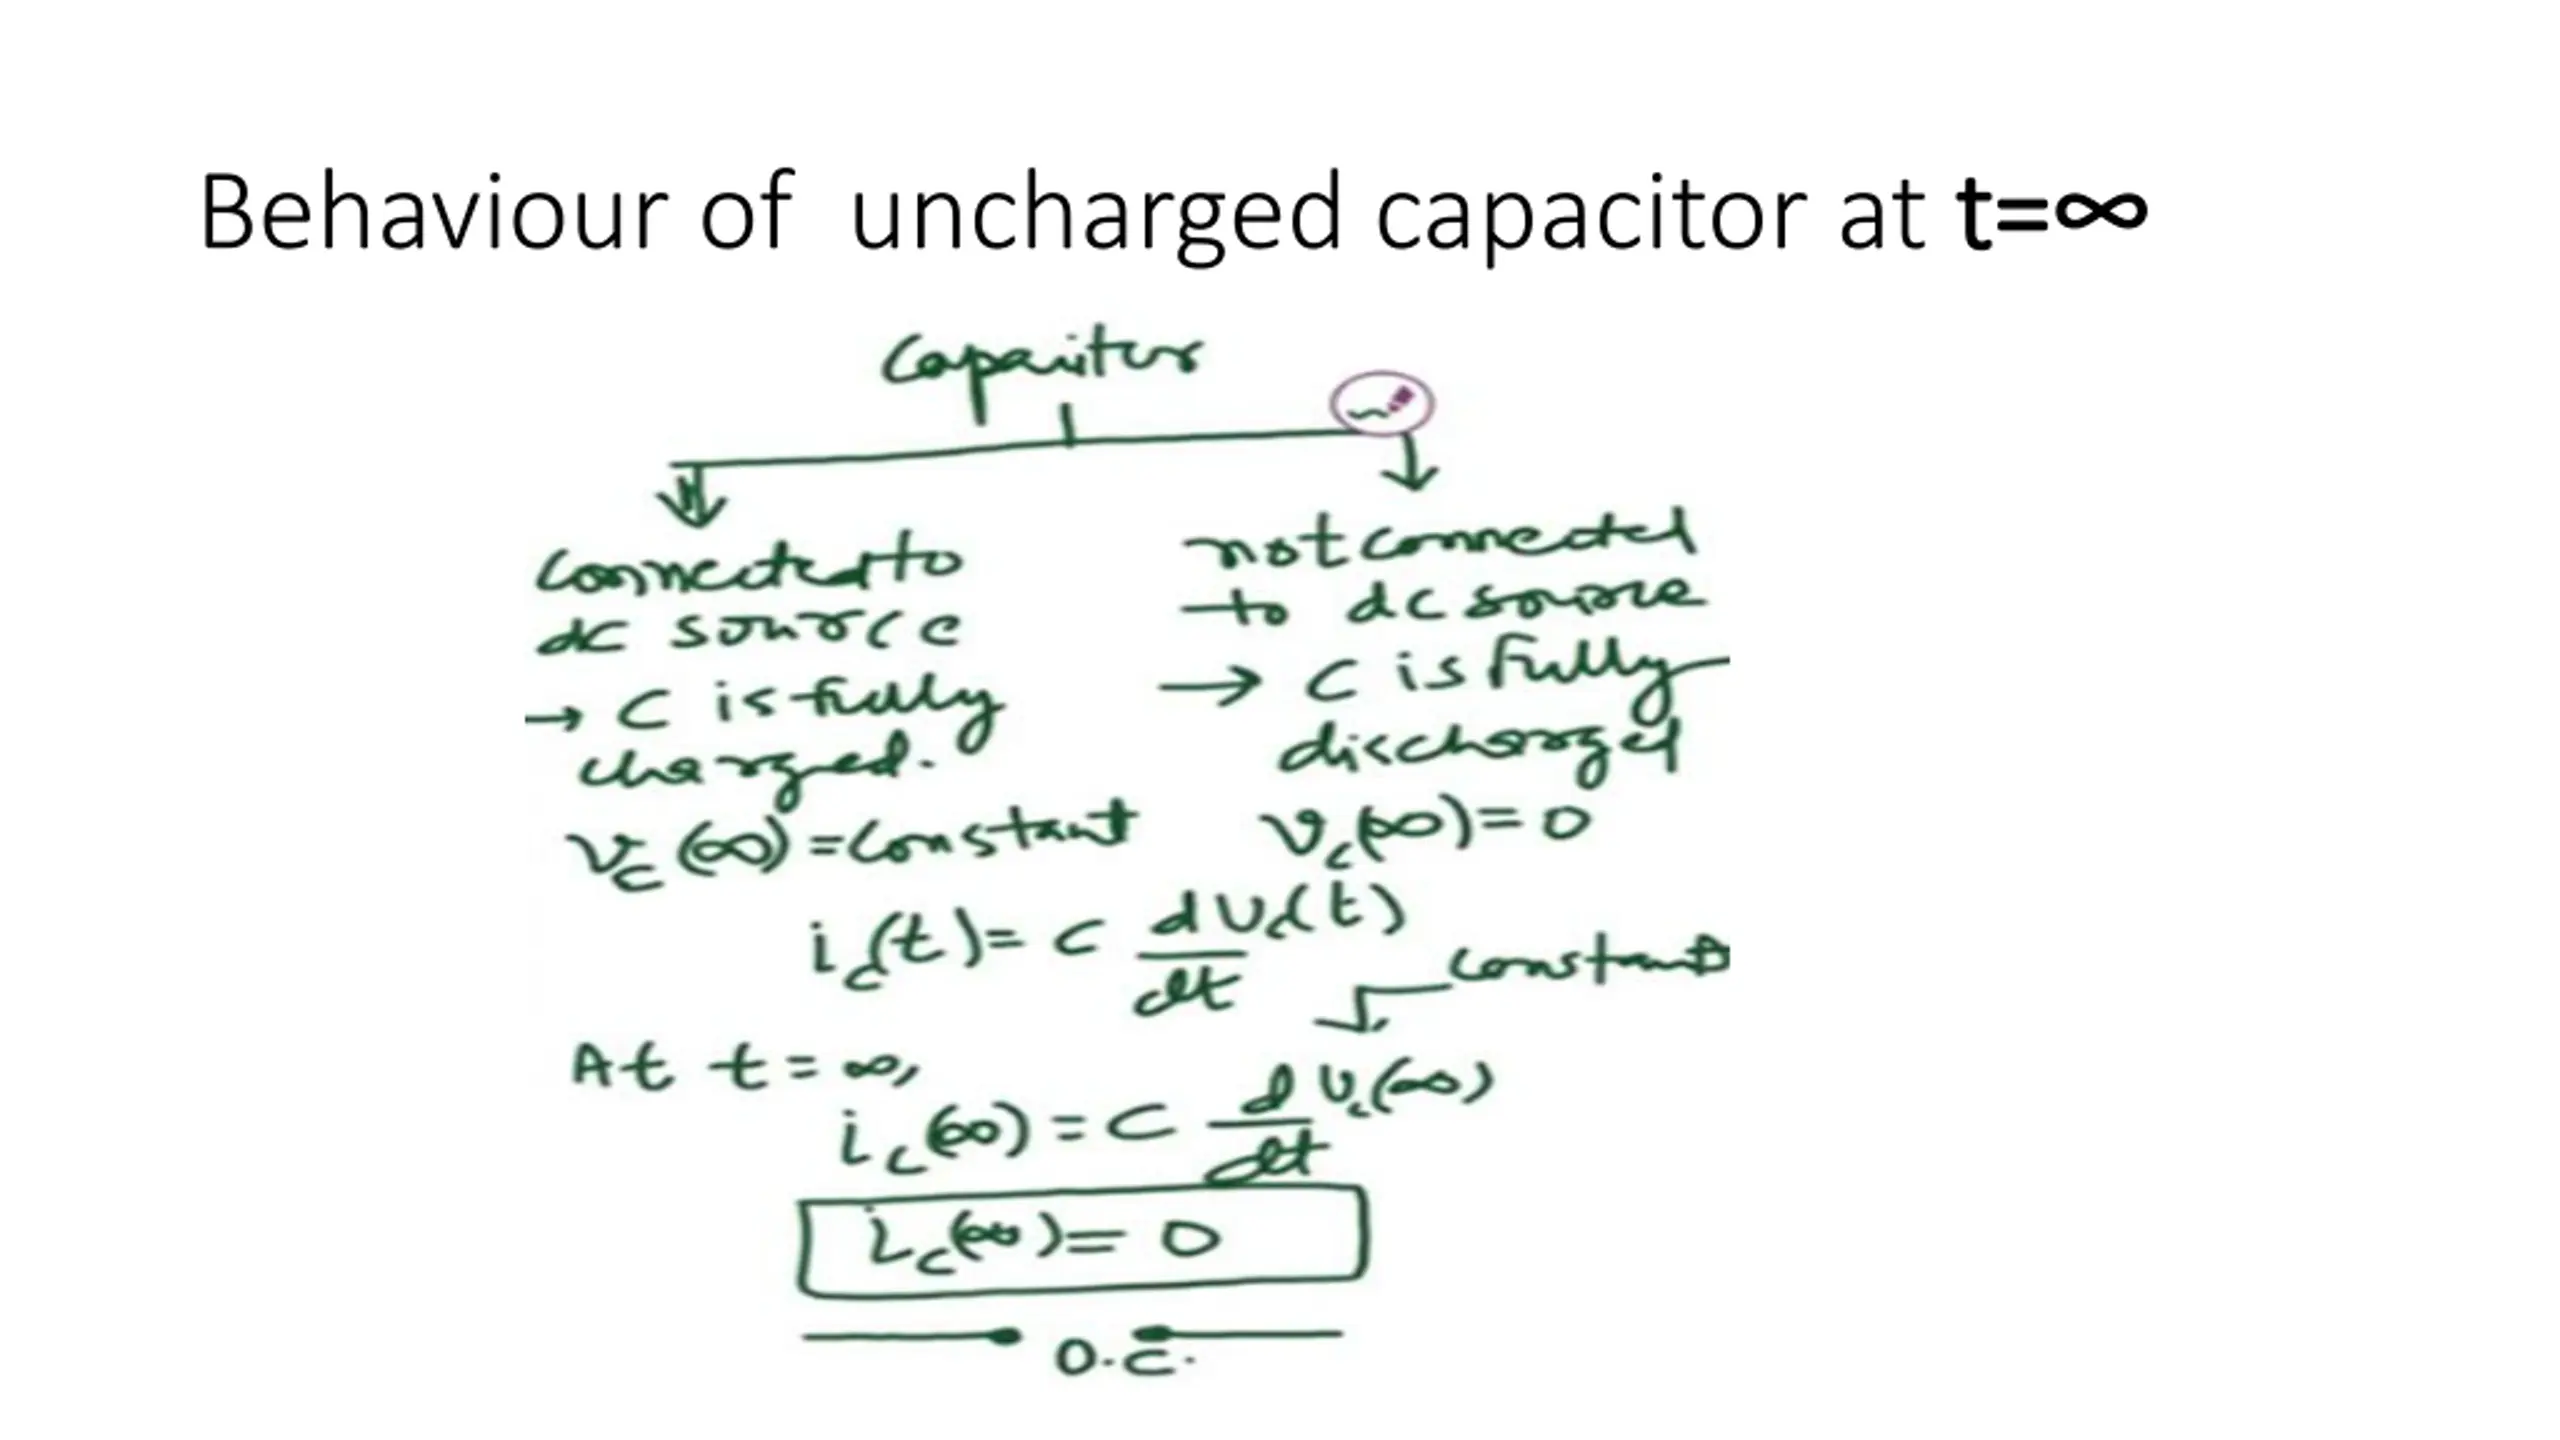 Behaviour of uncharged capacitor at t=∞
Capacitor
connected to
dc source
→ C is fully
charged.
v_c(∞) = constant
not connected
to dc source
→ C is fully
discharged
v_c(∞) = 0
i_c(t) = C dv_c(t)/dt
constant
At t = ∞,
i_c(∞) = C d/dt v_c(∞)
i_c(∞) = 0
O.C.